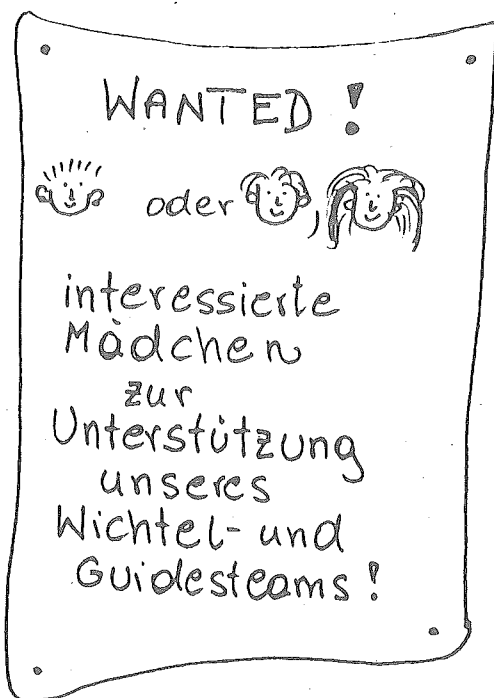 WANTED !
oder ,
interessierte
Mädchen
zur
Unterstützung
unseres
Wichtel- und
Guidesteams !